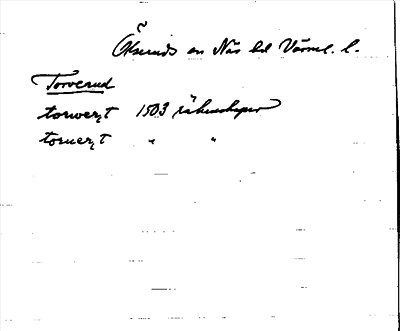 Ölseruds sn Näs hd Värml. l.
Torverud
torwerzt 1503 räkenskaper
toruerzt " "